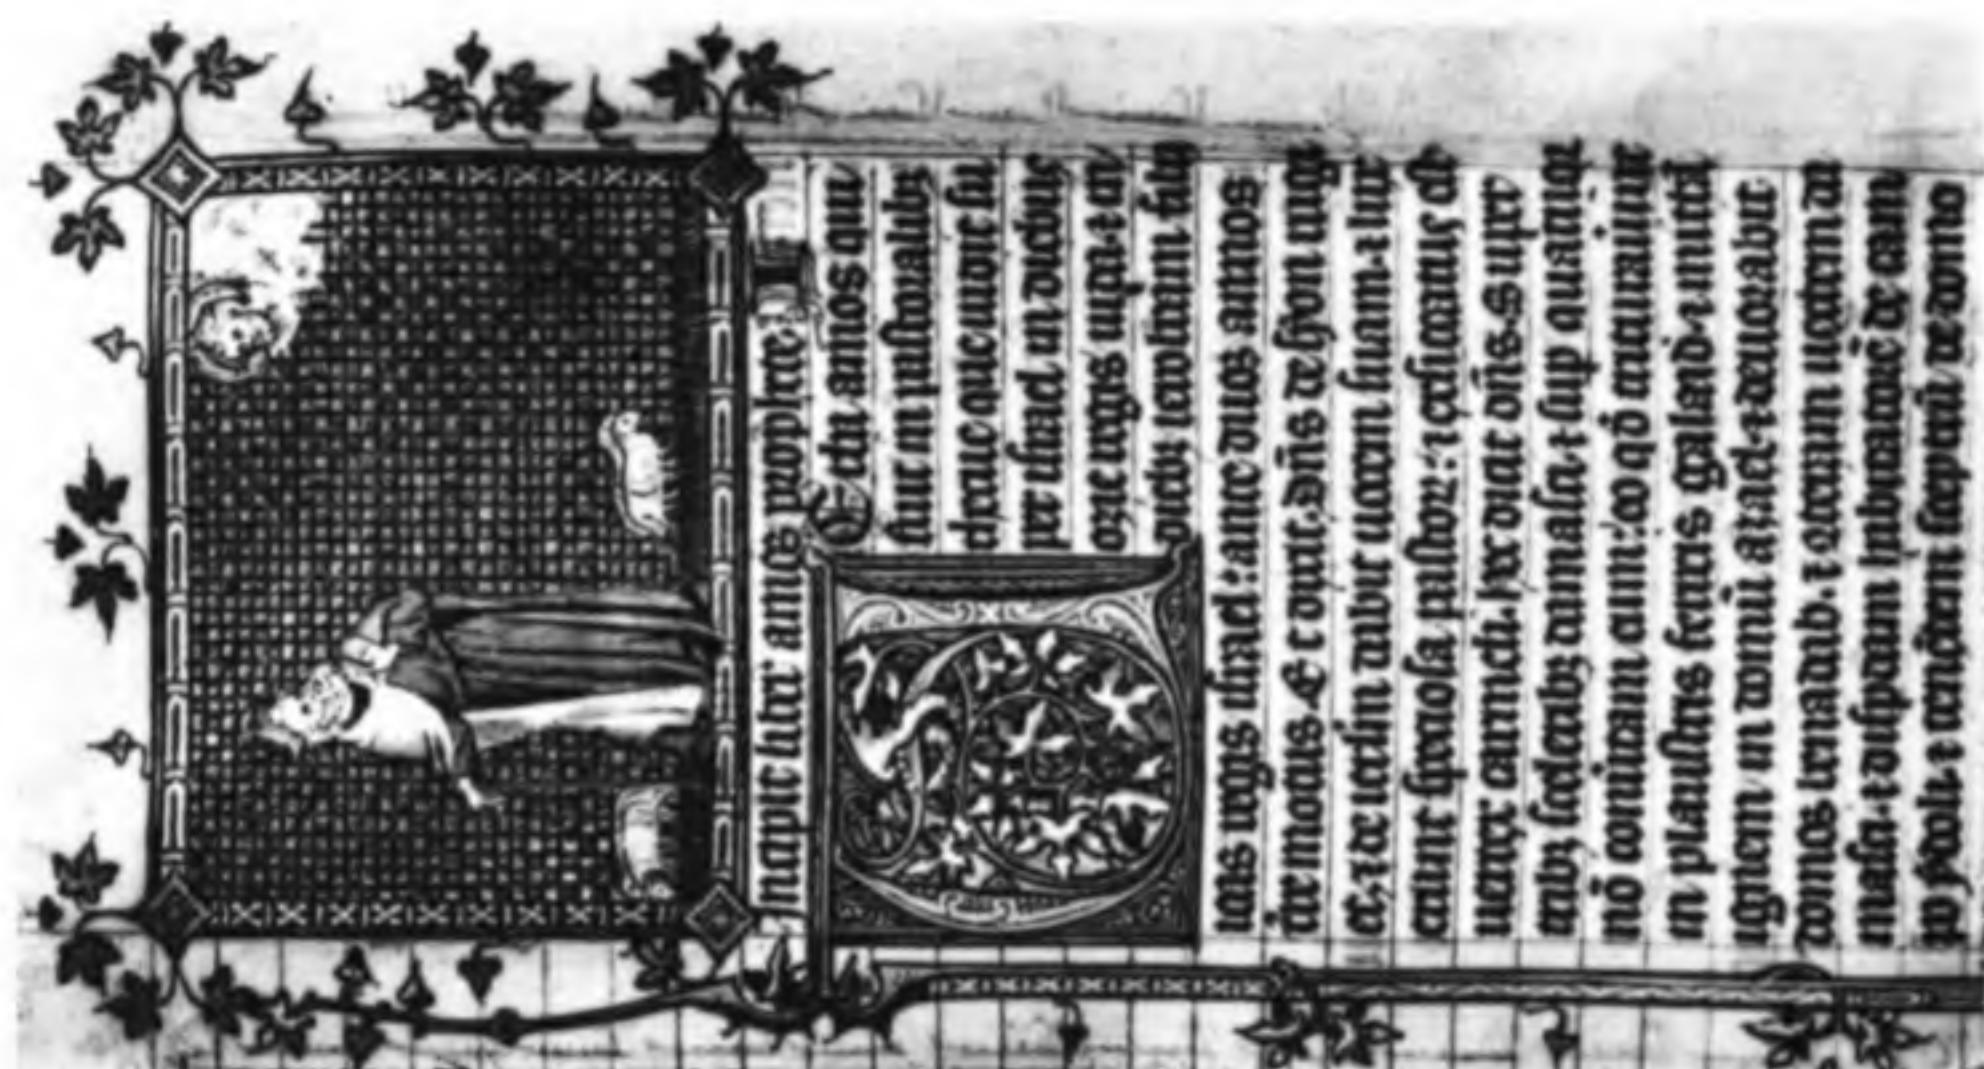 Incipit liber amos prophete.
Erba amos qui
fuit in pastoralibꝫ
thecue que uidit su
per israel in diebus
ozie regis iuda. ⁊ in
diebꝫ ieroboam filii
ioas regis israel: ante duos annos
terremotus. Et dixit. Dn̄s de syon rugi
et, ⁊ de ierlm̄ dabit uocem suam. ⁊ lux
erunt speciosa pastoꝝ: ⁊ exsiccatus est
uertex carmeli. Hec dicit dn̄s. Super
tribꝫ sceleribꝫ damasci. ⁊ sup quatuor
nō conuertam eum: eo qđ triturauerint
in plaustris ferreis galaad. ⁊ mittam
ignem in domū azael. ⁊ deuorabit
domos benadab. ⁊ conteram uectem da
masci. ⁊ disp̄dam habitatorē de cam
po ydoli. ⁊ tenētem sceptrū de domo